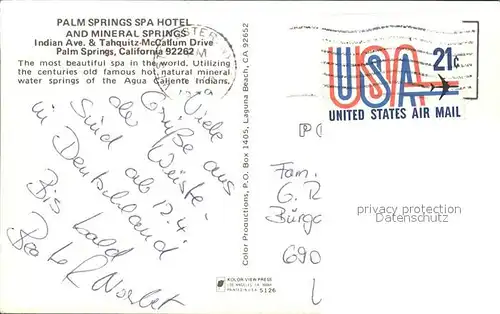 PALM SPRINGS SPA HOTEL
AND MINERAL SPRINGS
Indian Ave. & Tahquitz-McCallum Drive
Palm Springs, California 92262
The most beautiful spa in the world. Utilizing
the centuries old famous hot natural mineral
water springs of the Agua Caliente Indians.
Viele
Grüße aus
der Wüste
Sind ab 12.4.
in Deutschland
Bis bald
Norbert
Color Productions, P.O. Box 1405, Laguna Beach, CA 92652
KOLOR VIEW PRESS
LOS ANGELES, CA
5126
USA 21¢
UNITED STATES AIR MAIL
PO
Fam.
G. R
Bürg
690
privacy protection
Datenschutz